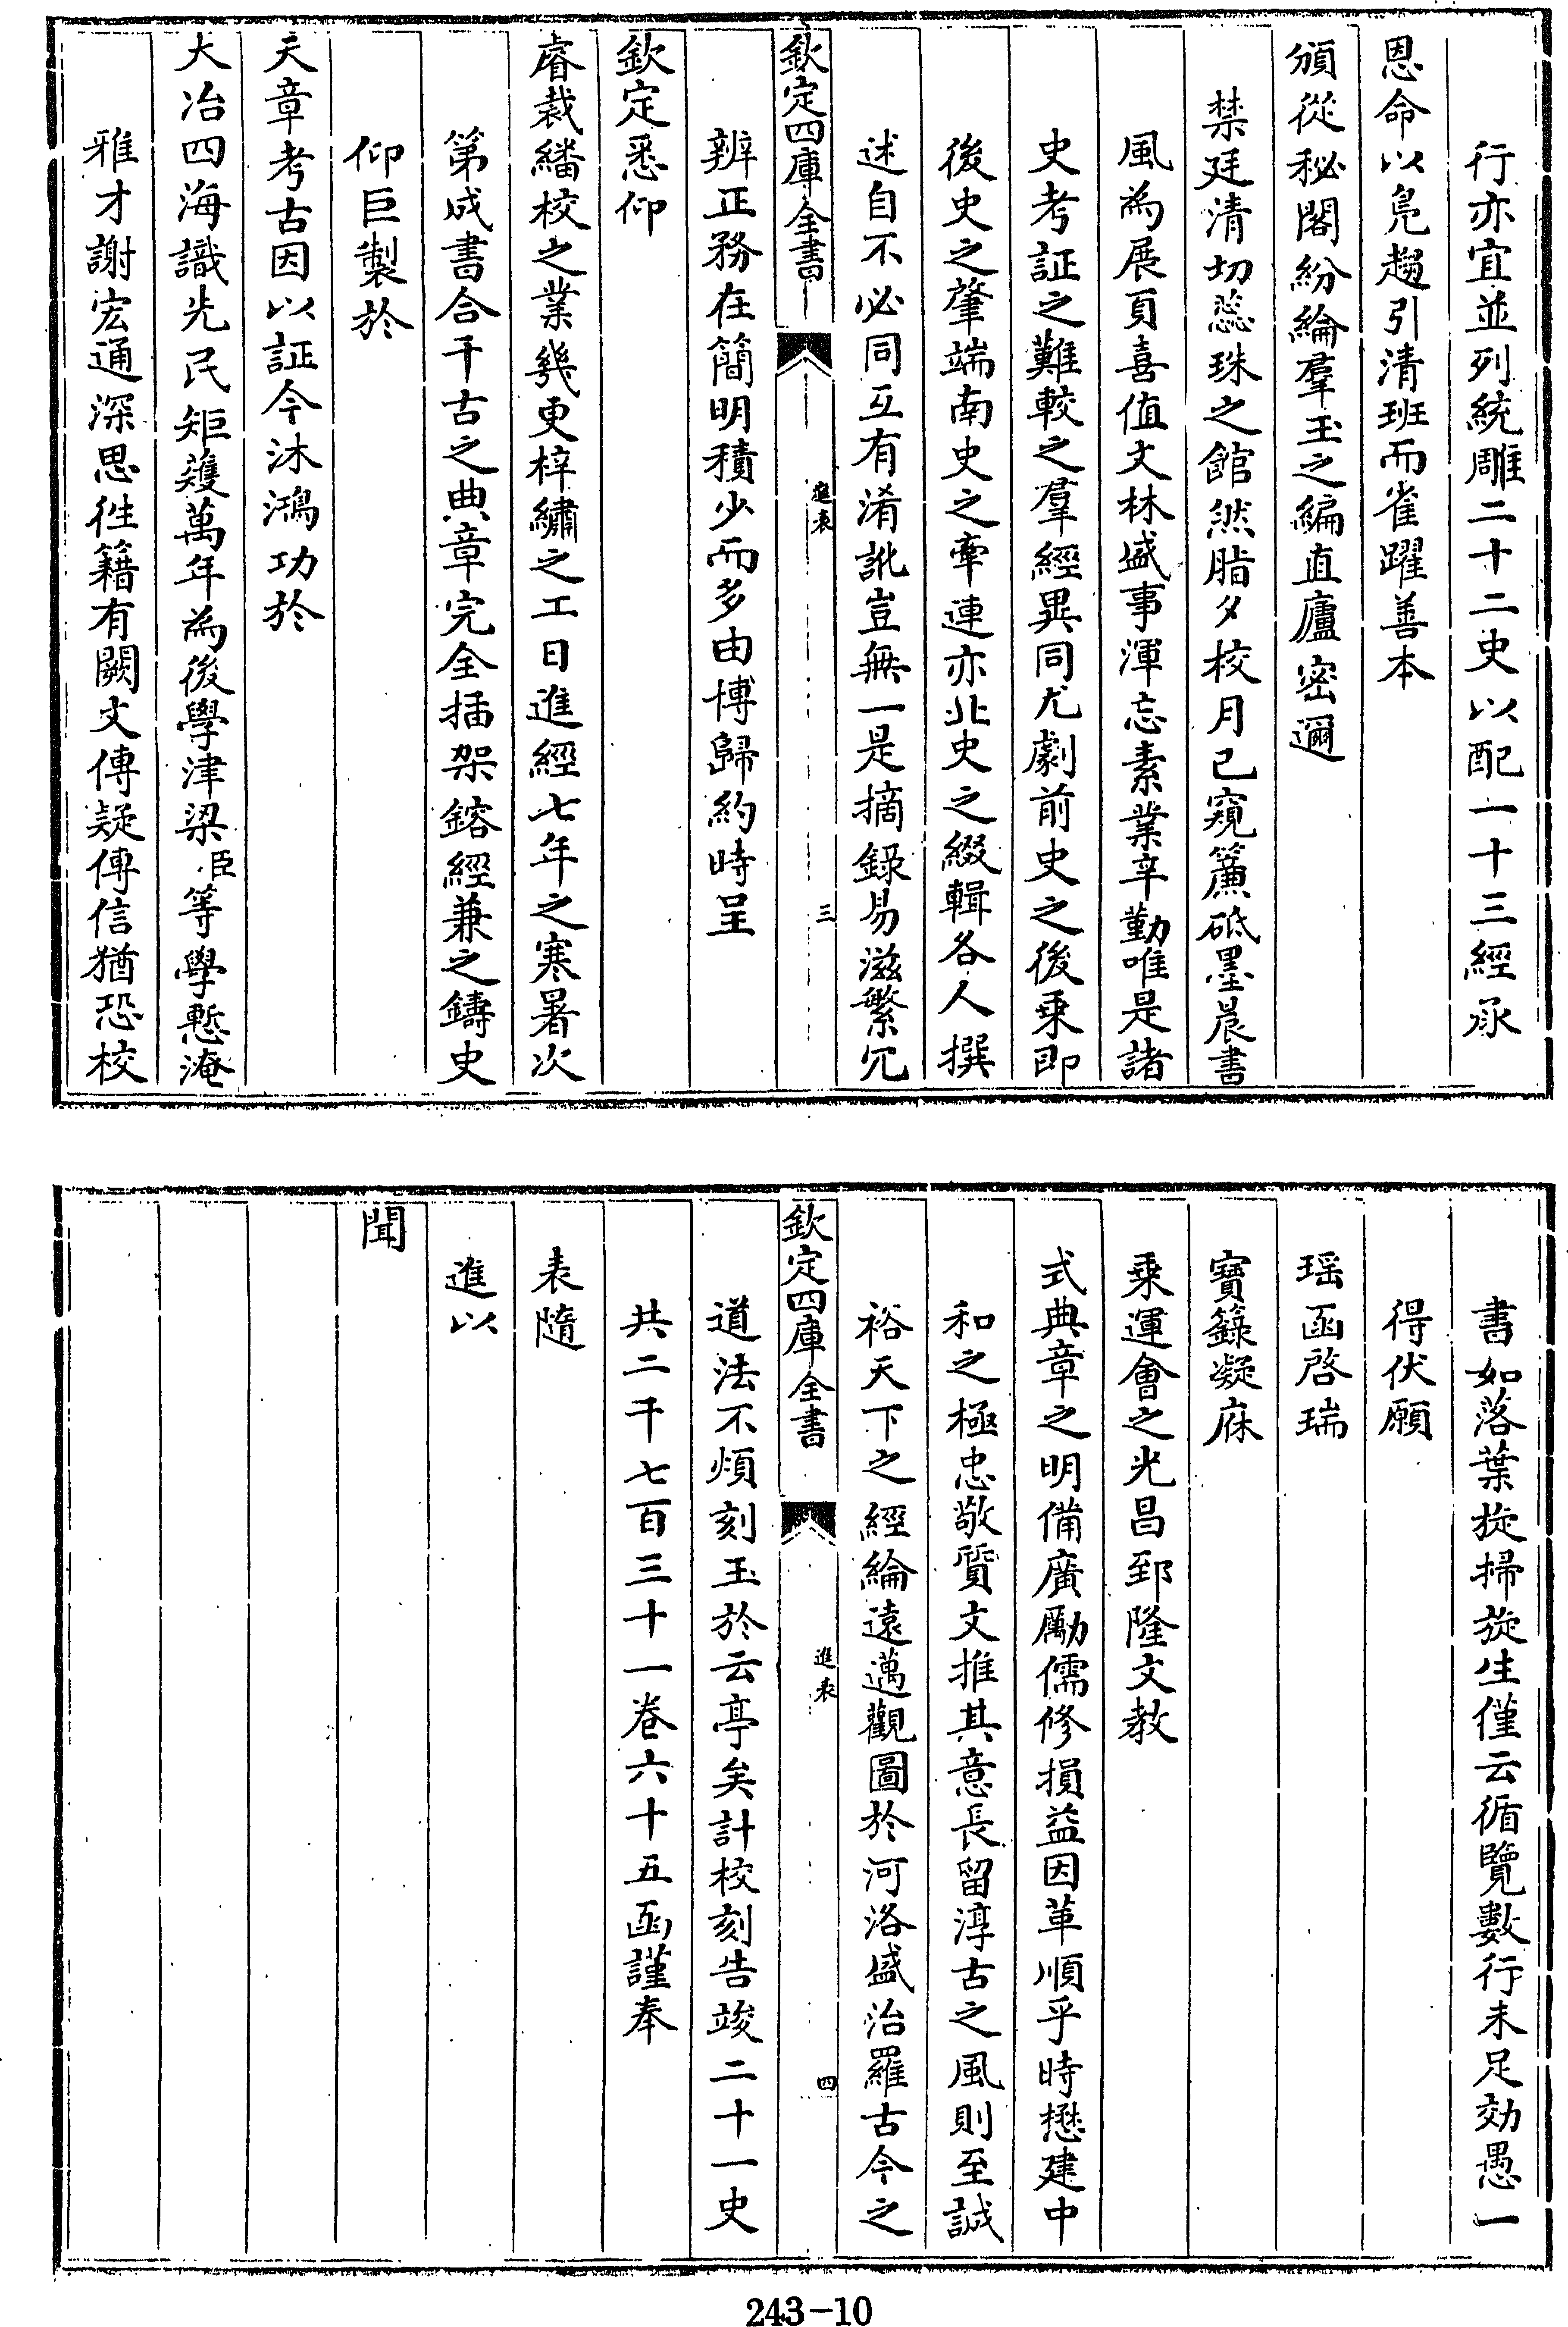 行亦宜並列統雕二十二史以配一十三經承
恩命以鳧趨引清班而雀躍善本
頒從秘閣紛綸羣玉之編直廬密邇
禁廷清切蕊珠之館然脂夕校月已窺簾砥墨晨書
風為展頁喜值文林盛事渾忘素業辛勤唯是諸
史考証之難較之羣經異同尤劇前史之後乗即
後史之肇端南史之牽連亦北史之綴輯各人撰
述自不必同互有淆訛豈無一是摘錄易滋繁冗
欽定四庫全書
進表
三
辨正務在簡明積少而多由博歸約時呈
欽定悉仰
睿裁繙校之業幾更梓繡之工日進經七年之寒暑次
第成書合千古之典章完全插架鎔經兼之鑄史
仰巨製於
天章考古因以証今沐鴻功於
大冶四海識先民矩矱萬年為後學津梁臣等學慙淹
雅才謝宏通深思徃籍有闕文傳疑傳信猶恐校
書如落葉旋掃旋生僅云循覽數行未足効愚一
得伏願
瑶函啓瑞
寶籙凝庥
乗運會之光昌郅隆文教
式典章之明備廣勵儒修損益因革順乎時懋建中
和之極忠敬質文推其意長留淳古之風則至誠
裕天下之經綸遠邁觀圖於河洛盛治羅古今之
欽定四庫全書
進表
四
道法不煩刻玉於云亭矣計校刻告竣二十一史
共二千七百三十一卷六十五函謹奉
表隨
進以
聞
243-10